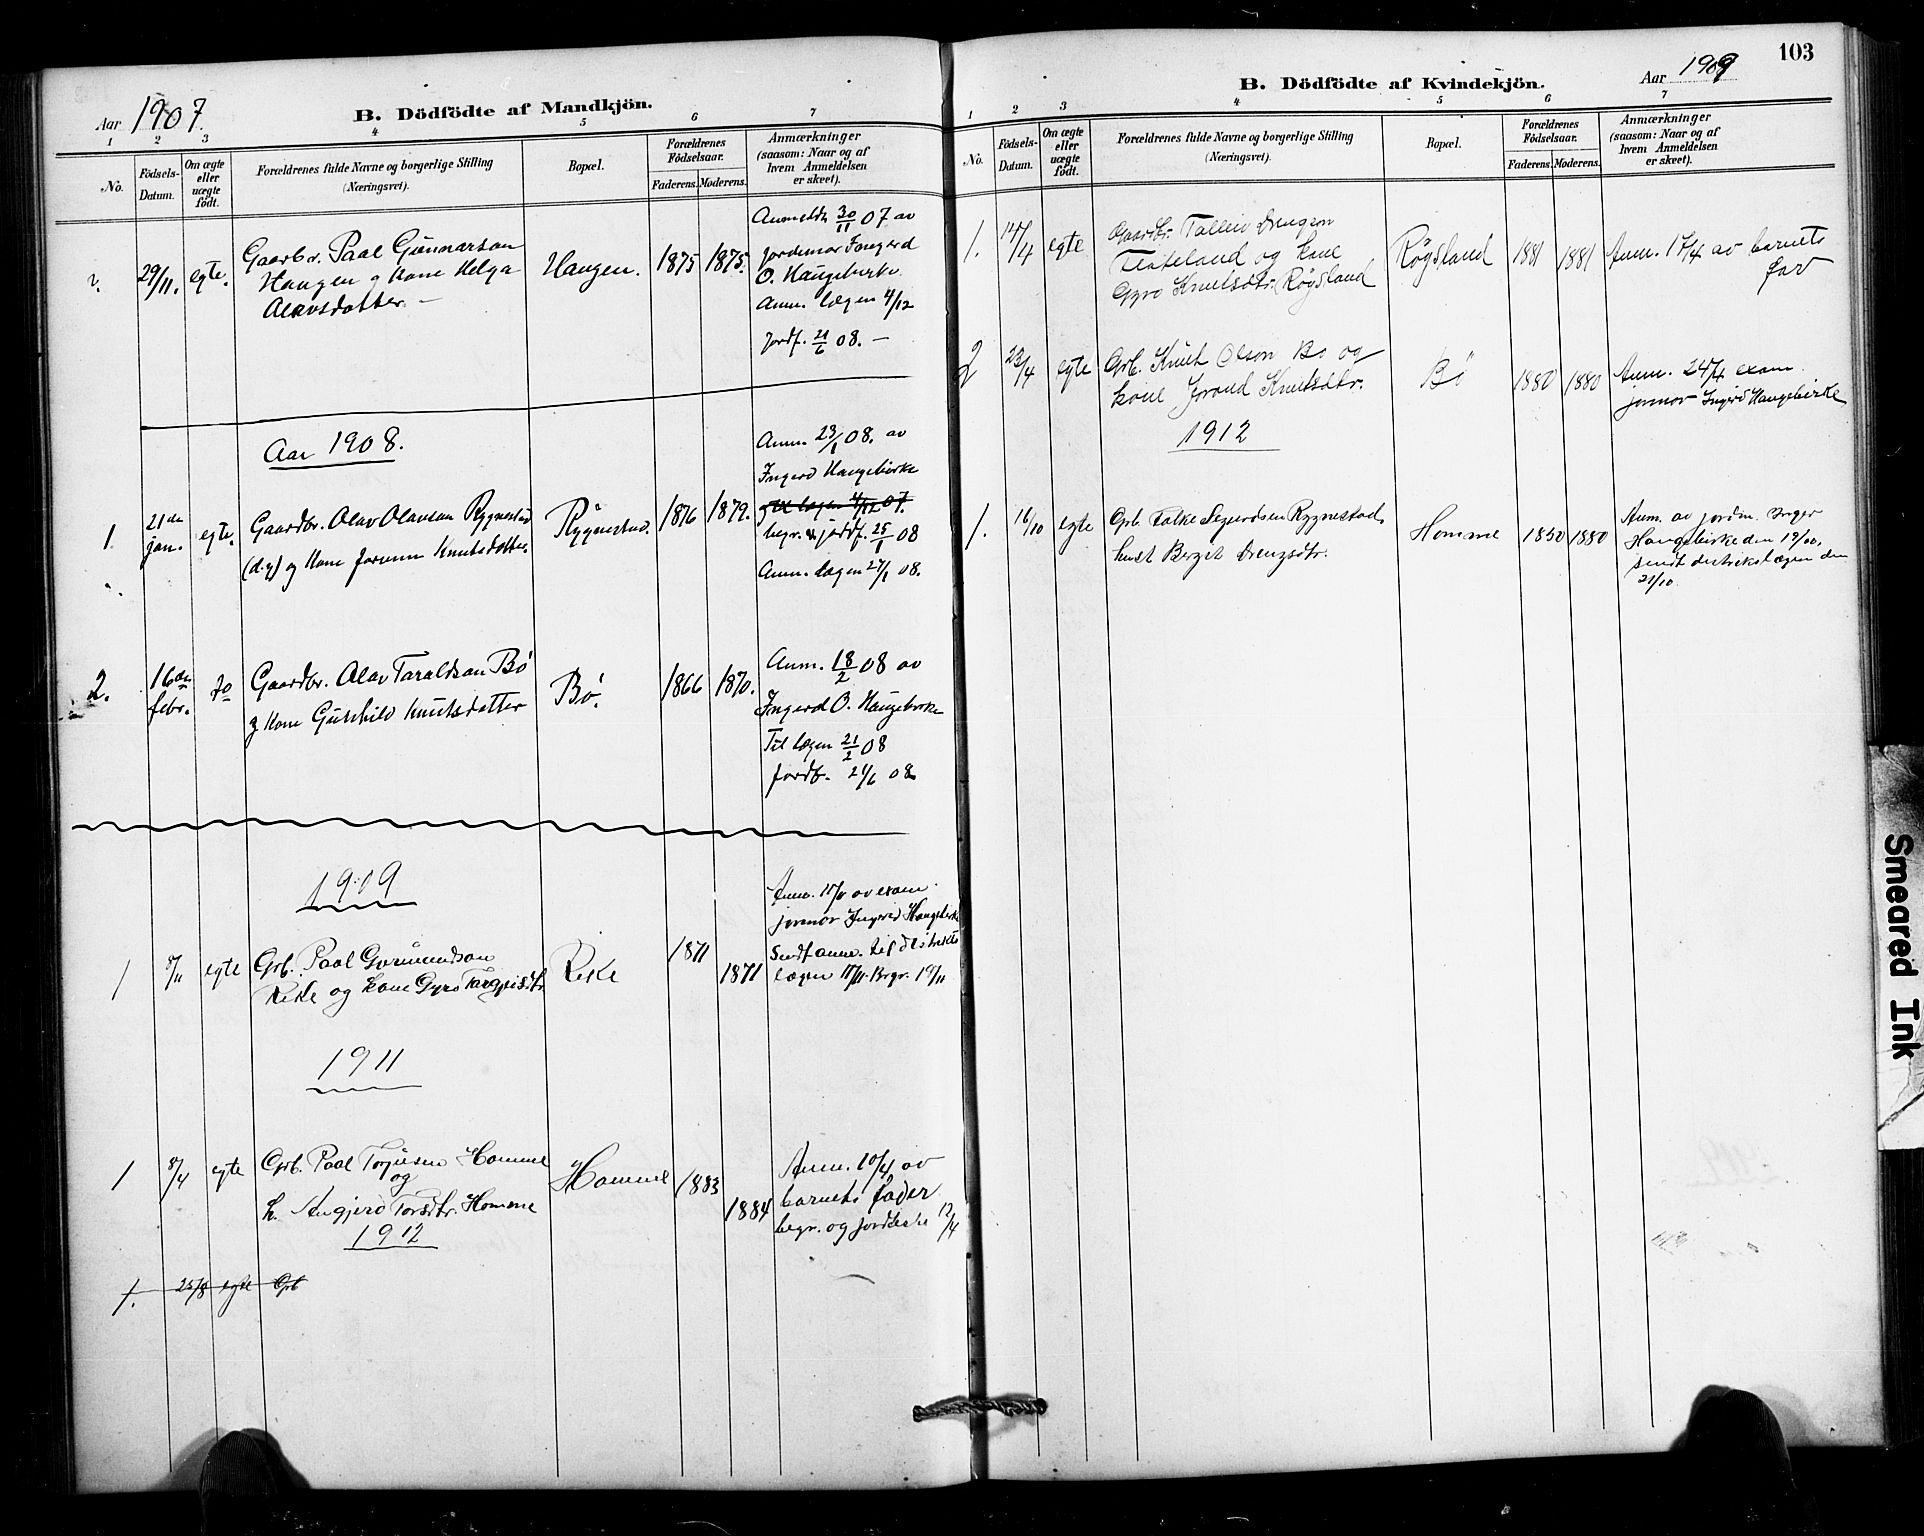 Aar 1907.
B. Dödfödte af Mandkjön.
1 2 3 4 5 6 7
No.
Födsels-Datum.
Om ægte eller uægte födt.
Forældrenes fulde Navne og borgerlige Stilling
(Næringsvei).
Bopæl.
Forældrenes Födselsaar.
Faderens. Moderens.
Anmærkninger
(saasom: Naar og af
hvem Anmeldelsen
er skeet).
29/11. egte.
Gaarbr. Paal Gunnarson
Haugen og kone Helga
Olavsdotter. —
Haugen. 1875 1875.
Anmeldt 30/11 07 av
Jordemor Ingerd
O. Haugebirke.
Anm. lægen 4/12
Jordf. 21/6 08. —
Aar 1908.
1. 21de jan. egte.
Gaardbr. Olav Olavson Rygnestad
(d.y) og Kone Jorunn Knutsdotter.
Rygnestad. 1876 1879.
Anm. 23/1 08. av
Ingerd Haugebirke
til lægen 4/12 07.
begr. & jordf. 25/1 08
Anm. Lægen 27/1 08.
2. 16de febr. Do
Gaardbr. Olav Taraldson Bø
og Kone Gunhild Knutsdotter
Bø. 1866 1870.
Anm. 18/2 08 av
Ingerd O. Haugebirke
Til Lægen 21/2 08
Jordf. 21/6 08
1909
1 8/11 egte
Grb. Paal Gunnundson
Rike og kone Gyro Targjeisdtr.
Rike 1871 1871
Anm. 11/11 av exam.
jormor Ingerd Haugebirke
Sendt anm. til distrikts
lægen 11/11. Begr. 19/11
1911
1 8/4 egte
Grb. Paal Torjusen Homme
og
k. Angjerd Torsdtr. Homme
Homme 1883 1884
Anm. 10/4 av
barnets fader
begr. og jordfeste 12/4
1912
1. 25/8 egte Grb
103
B. Dödfödte af Kvindekjön.
Aar 1909
1 2 3 4 5 6 7
No.
Födsels-Datum.
Om ægte eller uægte födt.
Forældrenes fulde Navne og borgerlige Stilling
(Næringsvei).
Bopæl.
Forældrenes Födselsaar.
Faderens. Moderens.
Anmærkninger
(saasom: Naar og af
hvem Anmeldelsen
er skeet).
1. egte
Gaardbr. Talleiv Drengson
Flateland og kone
Gyro Knutsdtr. Røgsland
Røgsland 1881 1881
Anm. 17/4 av barnets
far
2 23/4 egte
Grb. Knut Olson Bø og
kone Jorand Knutsdtr.
Bø 1880 1880
Anm. 24/4 exam.
jormor Ingerd Haugebirke
1912
1. 16/10 egte
Grb. Folke Sigurdsen Rygnestad,
hust Berget Drengsdtr.
Homme 1850 1880
Anm. av jordm. Inger
Haugebirke den 19/10,
sendt distriktslægen den
21/10.
Smeared Ink